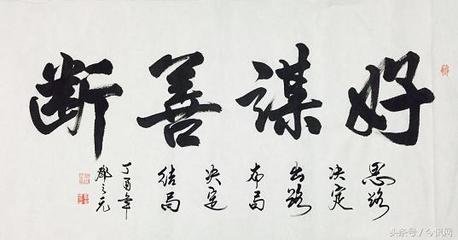 好謀善断
思路
决定
出路
布局
决定
结局
丁酉年
之元
头条号 /